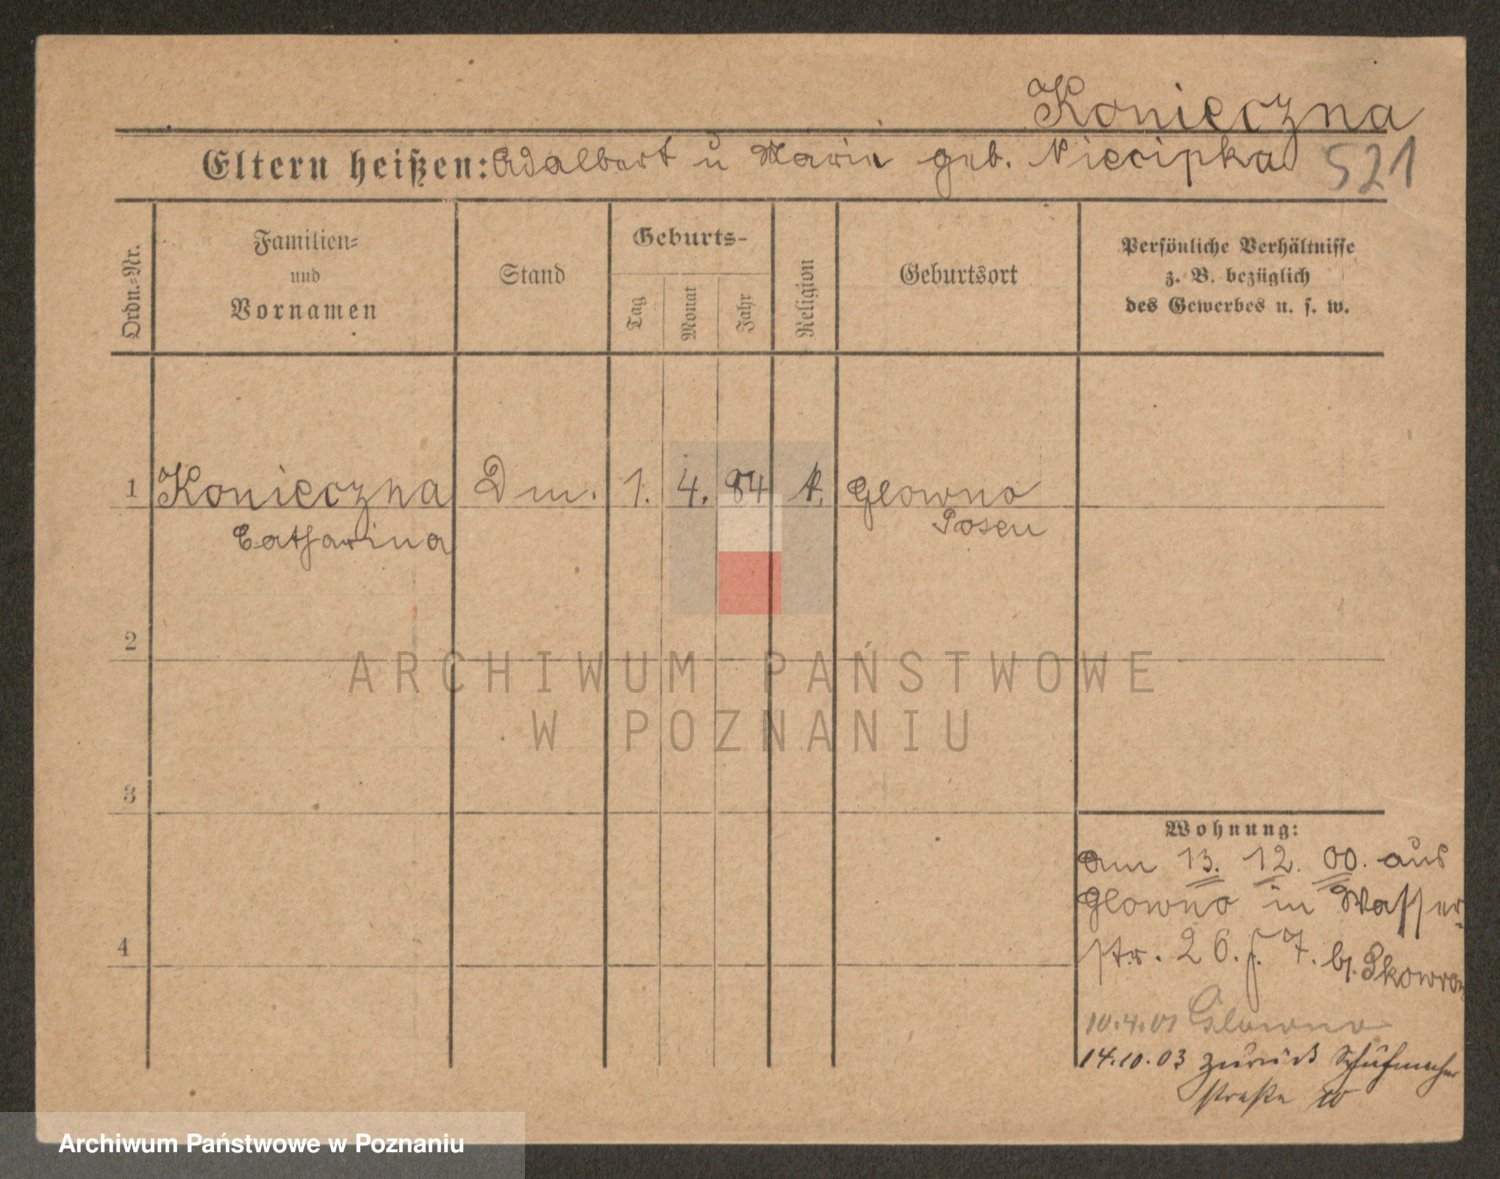 Konieczna
Eltern heißen: Adalbert u Marie geb. Niecipka 521
Ordn.-Nr.
Familien-
und
Vornamen
Stand
Geburts-
Tag
Monat
Jahr
Religion
Geburtsort
Persönliche Verhältnisse
z. B. bezüglich
des Gewerbes u. s. w.
1 Konieczna Dm. 1. 4. 84 k. Glowno
Catharina Posen
2
3
4
Wohnung:
am 13. 12. 00. aus
Glowno in Wasser-
str. 26. f. 7. b. Skowron
10.4.01 Glowno
14.10.03 zurück Schuhmacher
straße 10
ARCHIWUM PAŃSTWOWE
W POZNANIU
Archiwum Państwowe w Poznaniu